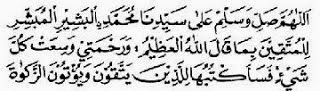 اَللّٰهُمَّ صَلِّ وَسَلِّمْ عَلٰى سَيِّدِنَا مُحَمَّدٍ ࣙالْبَشِيْرِ الْمُبَشِّرِ
لِلْمُتَّقِيْنَ بِمَا قَالَ اللّٰهُ الْعَظِيْمُ: وَرَحْمَتِيْ وَسِعَتْ كُلَّ
شَيْءٍ فَسَأَكْتُبُهَا لِلَّذِيْنَ يَتَّقُوْنَ وَيُؤْتُوْنَ الزَّكٰوةَ